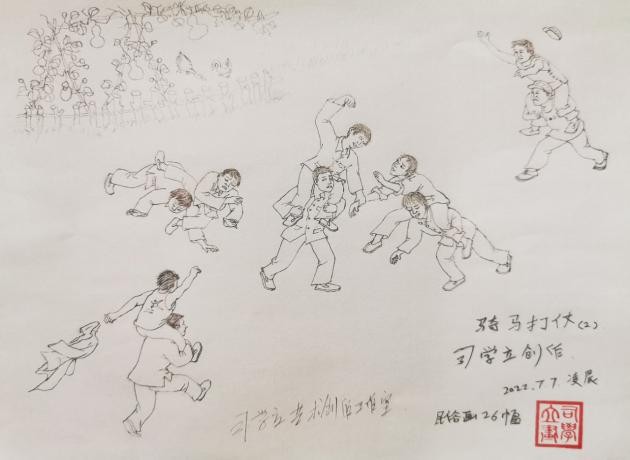 骑马打仗(2)
司学立创作
2022.7.7 凌晨
民俗画26幅
司学立艺术创作工作室
司学立画